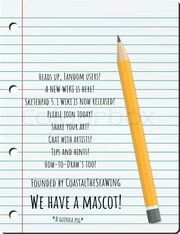 Heads up, Fandom users!
A new wiki is here!
Sketchpad 5.1 Wiki is now released!
Please join today!
Share your art!
Chat with artists!
Tips and hints!
How-to-Draw's too!
Founded by CoastalTheSeaWing
We have a mascot!
*A guinea pig*